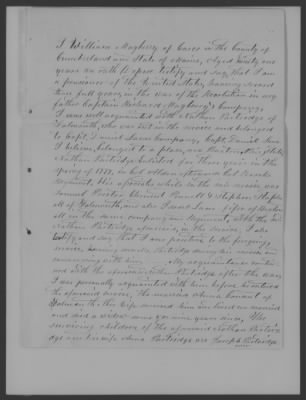 I William Mayberry of Casco in the County of
Cumberland and State of Maine, Aged ninety one
years on oath do depose testify and say, that I am
a pensioner of the United States, having served
three full years, in the War of the Revolution in my
father Captain Richard Mayberry's Company,
I was well acquainted with Nathan Partridge of
Falmouth, who was in the service and belonged
to Capt. Daniel Lunt Company, Capt. Daniel Lunt
I believe, belonged to a place
Nathan Partridge enlisted for three years in the
Spring of 1777, in Col. Brooks
Regiment, His associates while in the service was
Samuel Clement Pennell & Stephen
all of Falmouth, and also
all in the same company and Regiment, with the said
Nathan Partridge aforesaid, in the service, I also
testify and say that I am positive to the foregoing
service, having seen Mr. Partridge during his service, and
conversing with him. My acquaintance continued
with the aforesaid Nathan Partridge after the war,
I was personally acquainted with him before he entered
the aforesaid service, He married
Falmouth. His wife survived him
and died a widow some years since, The
surviving children of the aforesaid Nathan Partridge
and his wife Partridge are Joseph Partridge